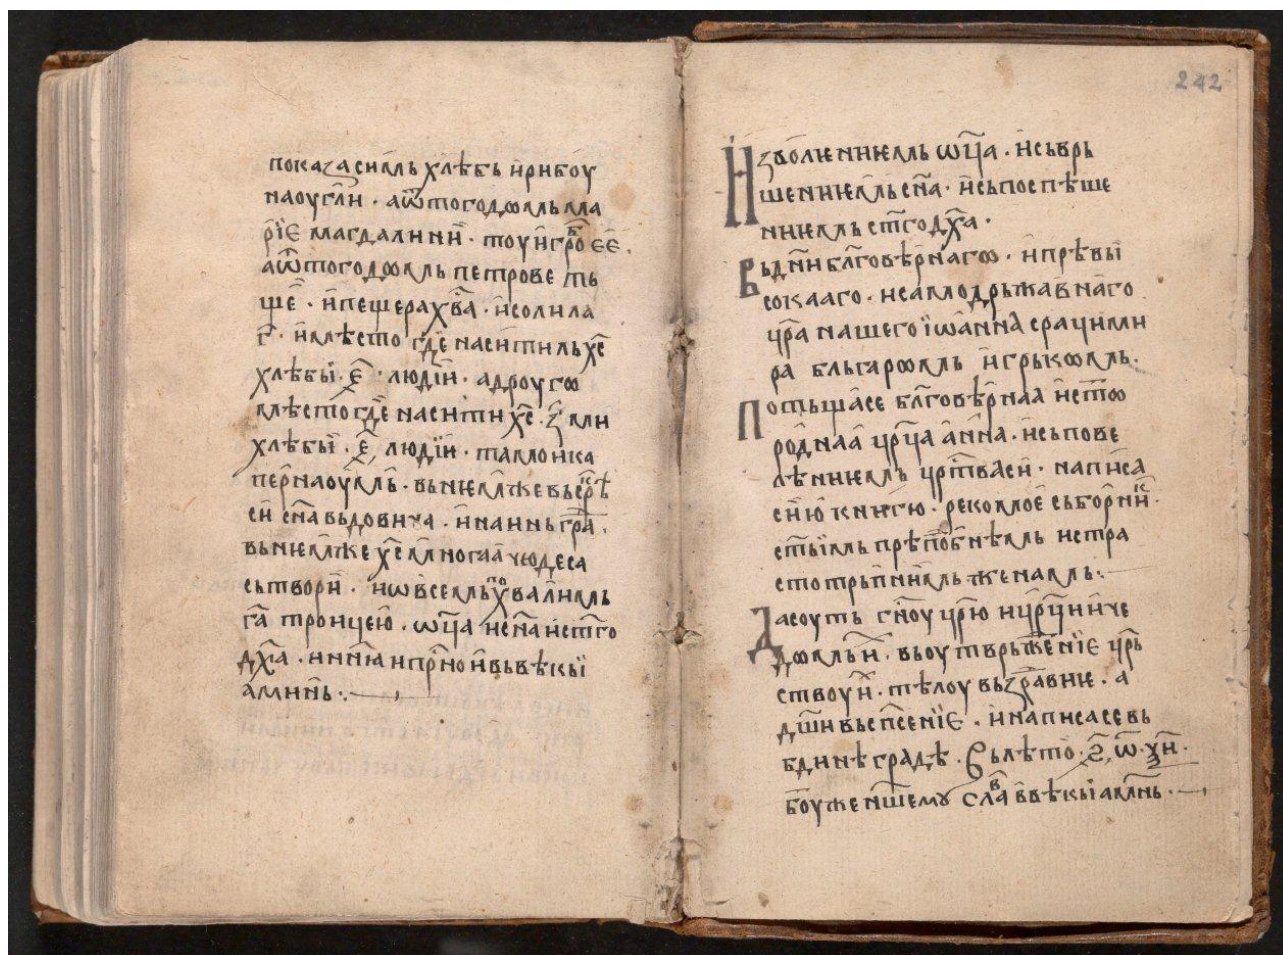 показасимль хлѣбь и҆рибоу
наоугли · аѿтогодѡмльма
рїе магдалини · тоуи҆гро҇в е҆е҆ ·
аѿтогодѡмль петрове ть
ще · и҆пещерахв҃а · и҆солила
г҃ · и҆мѣсто где наситиль х҃с
хлѣбы · е҃ · людїи · адроугѡ
мѣсто где насити х҃с · з҃ ми
хлѣбы · е҃ людїи · тамоика
перⷩ҇наоумль · вьнем҇же вьс҇крѣ
си сн҃а вьдовича · и҆наинь гра҇ ·
вьнемже х҃с многаа҆ чюдеса
сьтвори · иѡвсемльпохвалимль
га҃ троицею · ѡц҃а исн҃а ист҃го
дх҃а · инн҃ꙗ ипр҇но и҆вьвѣкы
амⷩ҇инь :·
242
И҆зволꙗниемль ѡц҃а · и҆сьврь
шениемльсн҃а · и҆сьпоспѣше
ниемль ст҃годх҃а ·
Вьдн҃и блг҃овѣрⷩ҇наагѡ · и҆прѣвы
сокааго · исамодрьжавнⷩ҇аго
цр҃а нашего і҆ѡан҇на срачими
ра бльгарѡмль и҆грькѡмль ·
Потьща҆се блг҃овѣрⷩ҇ная и҆стоѡ
родⷩ҇наа҆ цр҃ца а҆н҇на · и҆сьпове
лѣниемль цр҃твас҇и · напи҆са
си҆ю҆ книгю · рекомое҆ сьбор҇ни҆к ·
ст҃ы҆мль прѣпⷪ҇бнѣмль истра
стотрьпⷩ҇нимль женамль :·
Дасоуть г҇ноу цр҃ю ицр҃ци и҆че
дѡмльи҆х · вьоутврьжⷣ҇енїе цр҃ь
ствоуи҆х · тѣлоу вьздравие · а҆
дш҃и вьсп҃сенїе · и҆написасе вь
бдинѣградѣ · Вьлѣто · ҂ѕ҃ · ѡ҃ · ѯ҃и ·
б҃оуженⷩ҇шему слава ввѣкыам҃нь ·